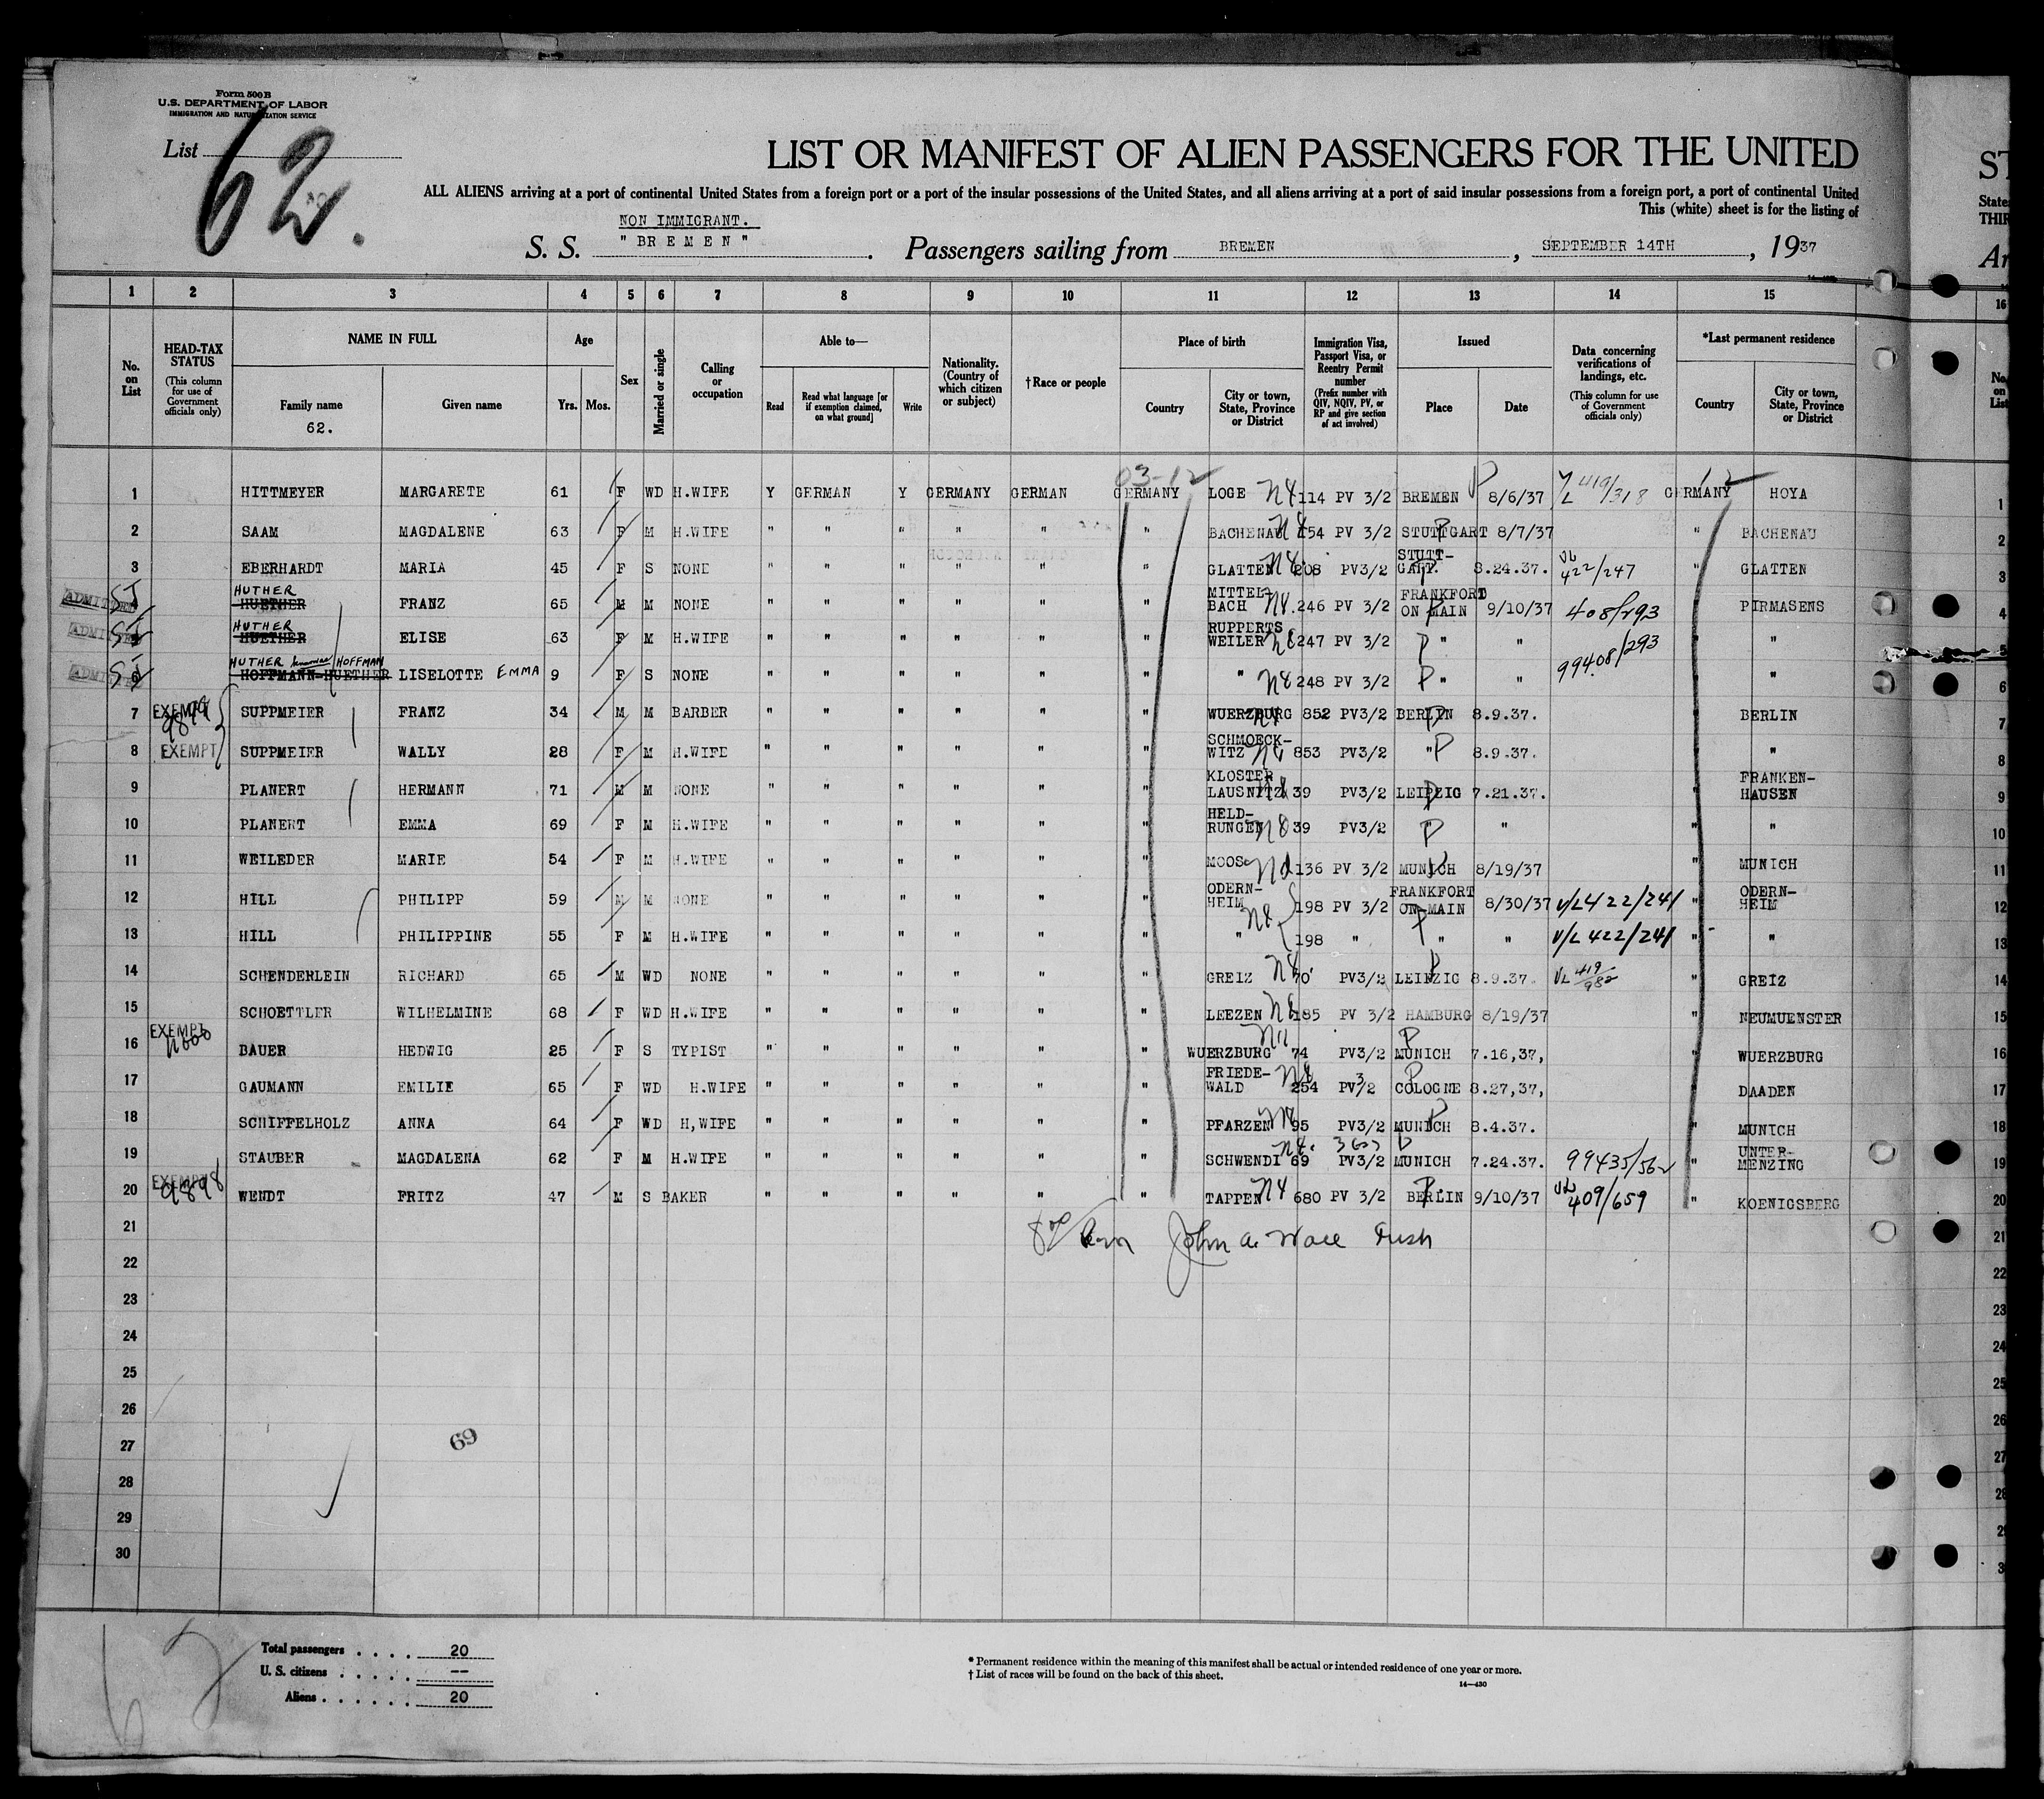 Form 500 B
U.S. DEPARTMENT OF LABOR
IMMIGRATION AND NATURALIZATION SERVICE
List 62.
LIST OR MANIFEST OF ALIEN PASSENGERS FOR THE UNITED
ST
ALL ALIENS arriving at a port of continental United States from a foreign port or a port of the insular possessions of the United States, and all aliens arriving at a port of said insular possessions from a foreign port, a port of continental United
State
This (white) sheet is for the listing of
THIR
NON IMMIGRANT.
S. S. "BREMEN". Passengers sailing from BREMEN, SEPTEMBER 14TH, 1937
Ar
1 2 3 4 5 6 7 8 9 10 11 12 13 14 15 16
No. on List
HEAD-TAX STATUS (This column for use of Government officials only)
NAME IN FULL
Family name
62.
Given name
Age
Yrs. Mos.
Sex
Married or single
Calling or occupation
Able to—
Read
Read what language [or if exemption claimed, on what ground]
Write
Nationality. (Country of which citizen or subject)
†Race or people
Place of birth
Country
City or town, State, Province or District
Immigration Visa, Passport Visa, or Reentry Permit number (Prefix number with QIV, NQIV, PV, or RP and give section of act involved)
Issued
Place
Date
Data concerning verifications of landings, etc. (This column for use of Government officials only)
*Last permanent residence
Country
City or town, State, Province or District
No. on List
03-12 12
1 HITTMEYER MARGARETE 61 F WD H.WIFE Y GERMAN Y GERMANY GERMAN GERMANY LOGE 114 PV 3/2 BREMEN 8/6/37 VL 419/318 GERMANY HOYA 1
2 SAAM MAGDALENE 63 F M H.WIFE " " " " " " BACHENAU 154 PV 3/2 STUTTGART 8/7/37 " BACHENAU 2
3 EBERHARDT MARIA 45 F S NONE " " " " " " GLATTEN 208 PV3/2 STUTT-GART. 8.24.37. VL 422/247 " GLATTEN 3
ADMITTED SI 4 HUTHER HUETHER FRANZ 65 M M NONE " " " " " " MITTEL-BACH 246 PV 3/2 FRANKFORT ON MAIN 9/10/37 408/293 " PIRMASENS 4
ADMITTED SI 5 HUTHER HUETHER ELISE 63 F M H.WIFE " " " " " " RUPPERTS WEILER 247 PV 3/2 " " 99408/293 " " 5
ADMITTED SI 6 HUTHER HOFFMAN HOFFMANN-HUETHER LISELOTTE EMMA 9 F S NONE " " " " " " " 248 PV 3/2 " " " " 6
7 EXEMPT SUPPMEIER FRANZ 34 M M BARBER " " " " " " WUERZBURG 852 PV3/2 BERLIN 8.9.37. " BERLIN 7
8 EXEMPT SUPPMEIER WALLY 28 F M H.WIFE " " " " " " SCHMOECK-WITZ 853 PV3/2 " 8.9.37. " " 8
9 PLANERT HERMANN 71 M M NONE " " " " " " KLOSTER LAUSNITZ 39 PV3/2 LEIPZIG 7.21.37. " FRANKEN-HAUSEN 9
10 PLANERT EMMA 69 F M H.WIFE " " " " " " HELD-RUNGEN 39 PV3/2 " " " " 10
11 WEILEDER MARIE 54 F M H.WIFE " " " " " " MOOS 136 PV 3/2 MUNICH 8/19/37 " MUNICH 11
12 HILL PHILIPP 59 M M NONE " " " " " " ODERN-HEIM 198 PV 3/2 FRANKFORT ON-MAIN 8/30/37 V/L 422/241 " ODERN-HEIM 12
13 HILL PHILIPPINE 55 F M H.WIFE " " " " " " " 198 " " " V/L 422/241 " " 13
14 SCHENDERLEIN RICHARD 65 M WD NONE " " " " " " GREIZ 70 PV3/2 LEIPZIG 8.9.37. VL 419/982 " GREIZ 14
15 SCHOETTLER WILHELMINE 68 F WD H.WIFE " " " " " " LEEZEN 185 PV 3/2 HAMBURG 8/19/37 " NEUMUENSTER 15
16 EXEMPT BAUER HEDWIG 25 F S TYPIST " " " " " " WUERZBURG 74 PV3/2 MUNICH 7.16,37, " WUERZBURG 16
17 GAUMANN EMILIE 65 F WD H.WIFE " " " " " " FRIEDE-WALD 254 PV3/2 COLOGNE 8.27,37, " DAADEN 17
18 SCHIFFELHOLZ ANNA 64 F WD H,WIFE " " " " " " PFARZEN 95 PV3/2 MUNICH 8.4.37. " MUNICH 18
19 STAUBER MAGDALENA 62 F M H.WIFE " " " " " " SCHWENDI 69 PV3/2 MUNICH 7.24.37. 99435/562 " UNTER-MENZING 19
20 EXEMPT 9898 WENDT FRITZ 47 M S BAKER " " " " " " TAPPEN 680 PV 3/2 BERLIN 9/10/37 VL 409/659 " KOENIGSBERG 20
21 John A. 21
22 22
23 23
24 24
25 25
26 26
27 69 27
28 28
29 29
30 30
Total passengers .... 20
U. S. citizens ..... --
Aliens ...... 20
* Permanent residence within the meaning of this manifest shall be actual or intended residence of one year or more.
† List of races will be found on the back of this sheet.
14—430